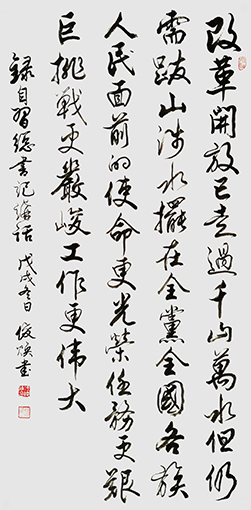 改革開放已走過千山萬水但仍
需跋山涉水擺在全黨全國各族
人民面前的使命更光榮任務更艱
巨挑戰更嚴峻工作更伟大
錄自習總書記講話 戊戌冬日 俊煥書